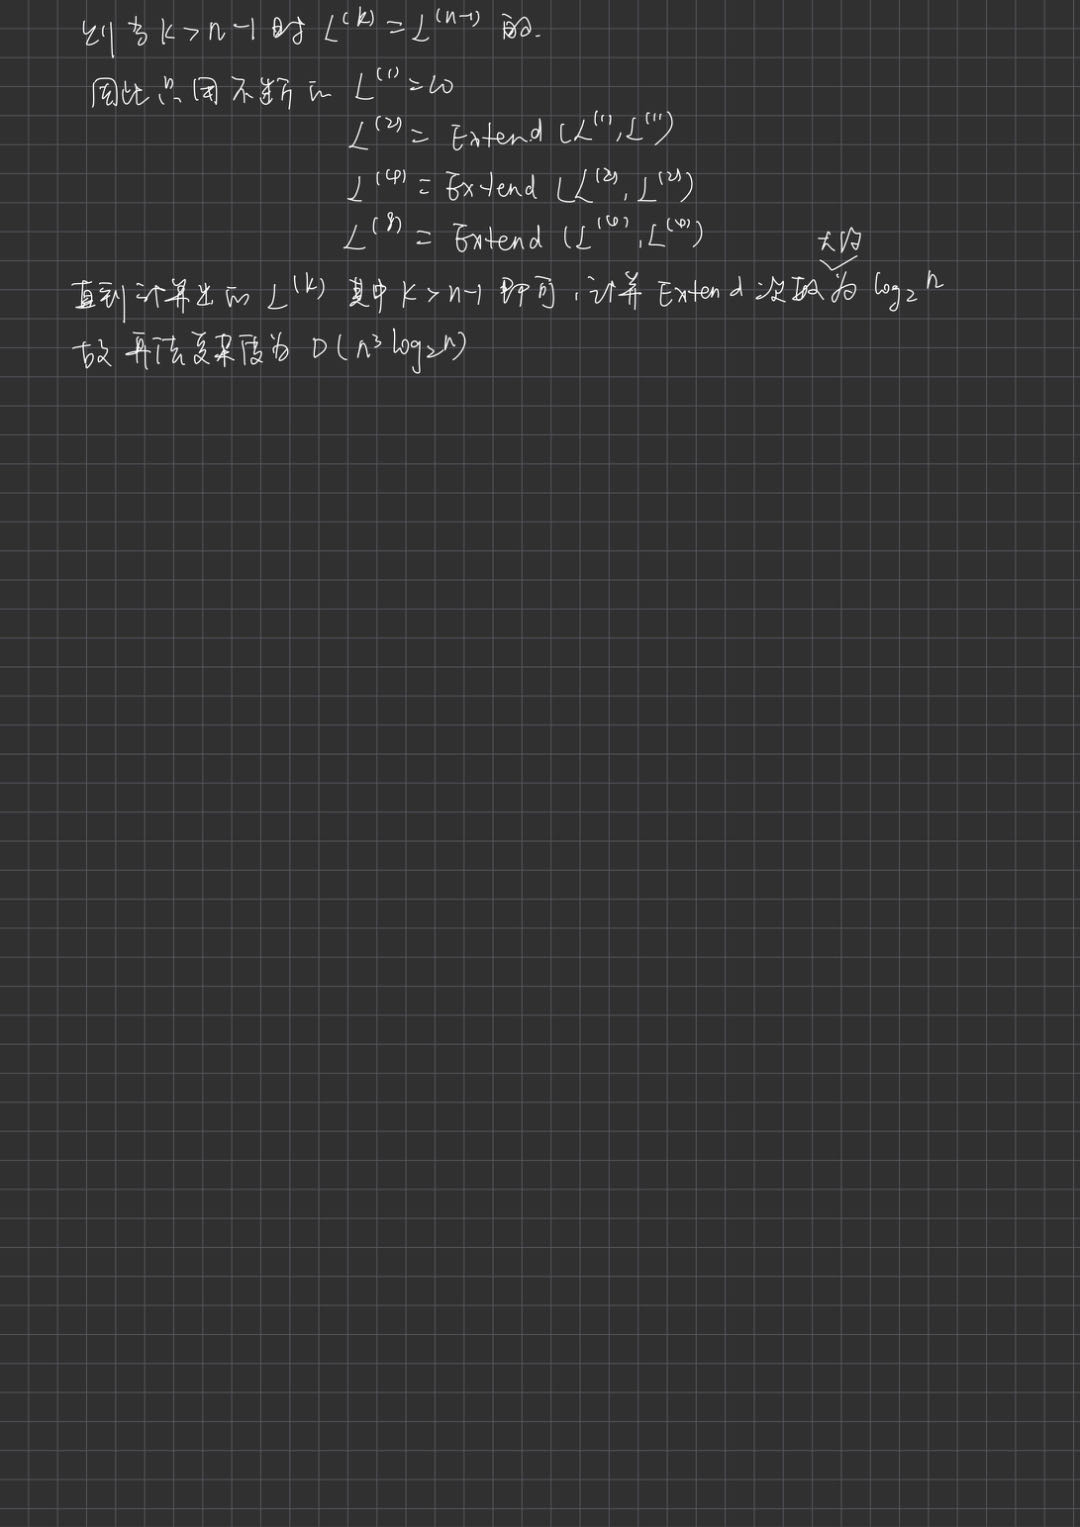 则当 k > n-1 时 L^(k) = L^(n-1) 的.
因此只用不断的 L^(1) = w
L^(2) = Extend (L^(1), L^(1))
L^(4) = Extend (L^(2), L^(2))
L^(8) = Extend (L^(4), L^(4))
大约
直到计算出的 L^(k) 其中 k > n-1 即可, 计算 Extend 次数为 log₂ n
故 算法复杂度为 O(n³ log₂n)